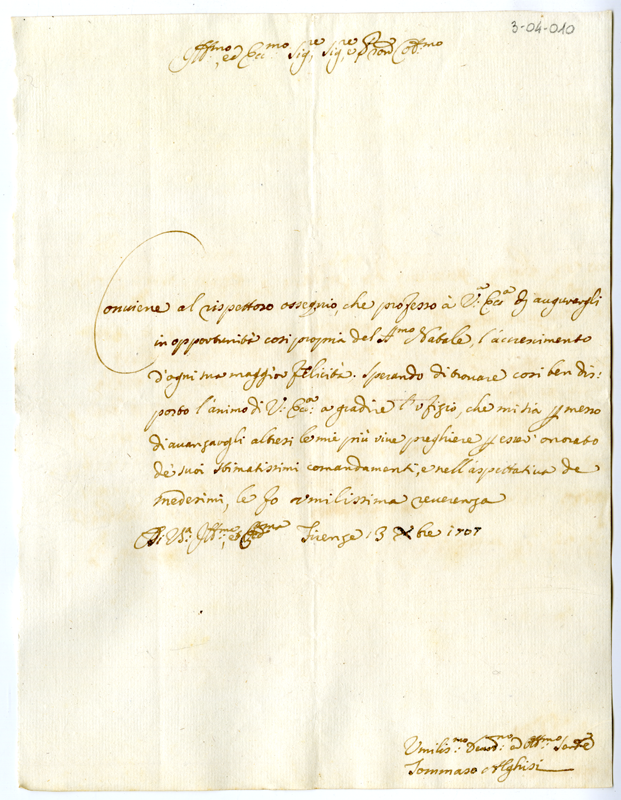 3-04-010
Ill.mo, ed Ecc.mo Sig.re, Sig.re, e Pron Col.mo
Conviene al rispettoso ossequio, che professo à V.a Ecc.a di augurargli
in opportunità così propria del S.mo Natale, l'accrescimento
d'ogni sua maggior felicità. Sperando di trovare così ben dis=
posto l'animo di V.a Ecc.a a gradire l'ofizio, che mi sia permesso
di avanzarogli altresì le mie più vive preghiere per esser onorato
de suoi stimatissimi comandamenti, e nell'aspettativa de
medesimi, le fo umilissima reverenza
Di V.a Ill.ma, ed Ecc.ma Firenze 13 Xbre 1707
Umiliss.mo Devot.mo ed Obb.mo Ser.re
Tommaso Alghisi